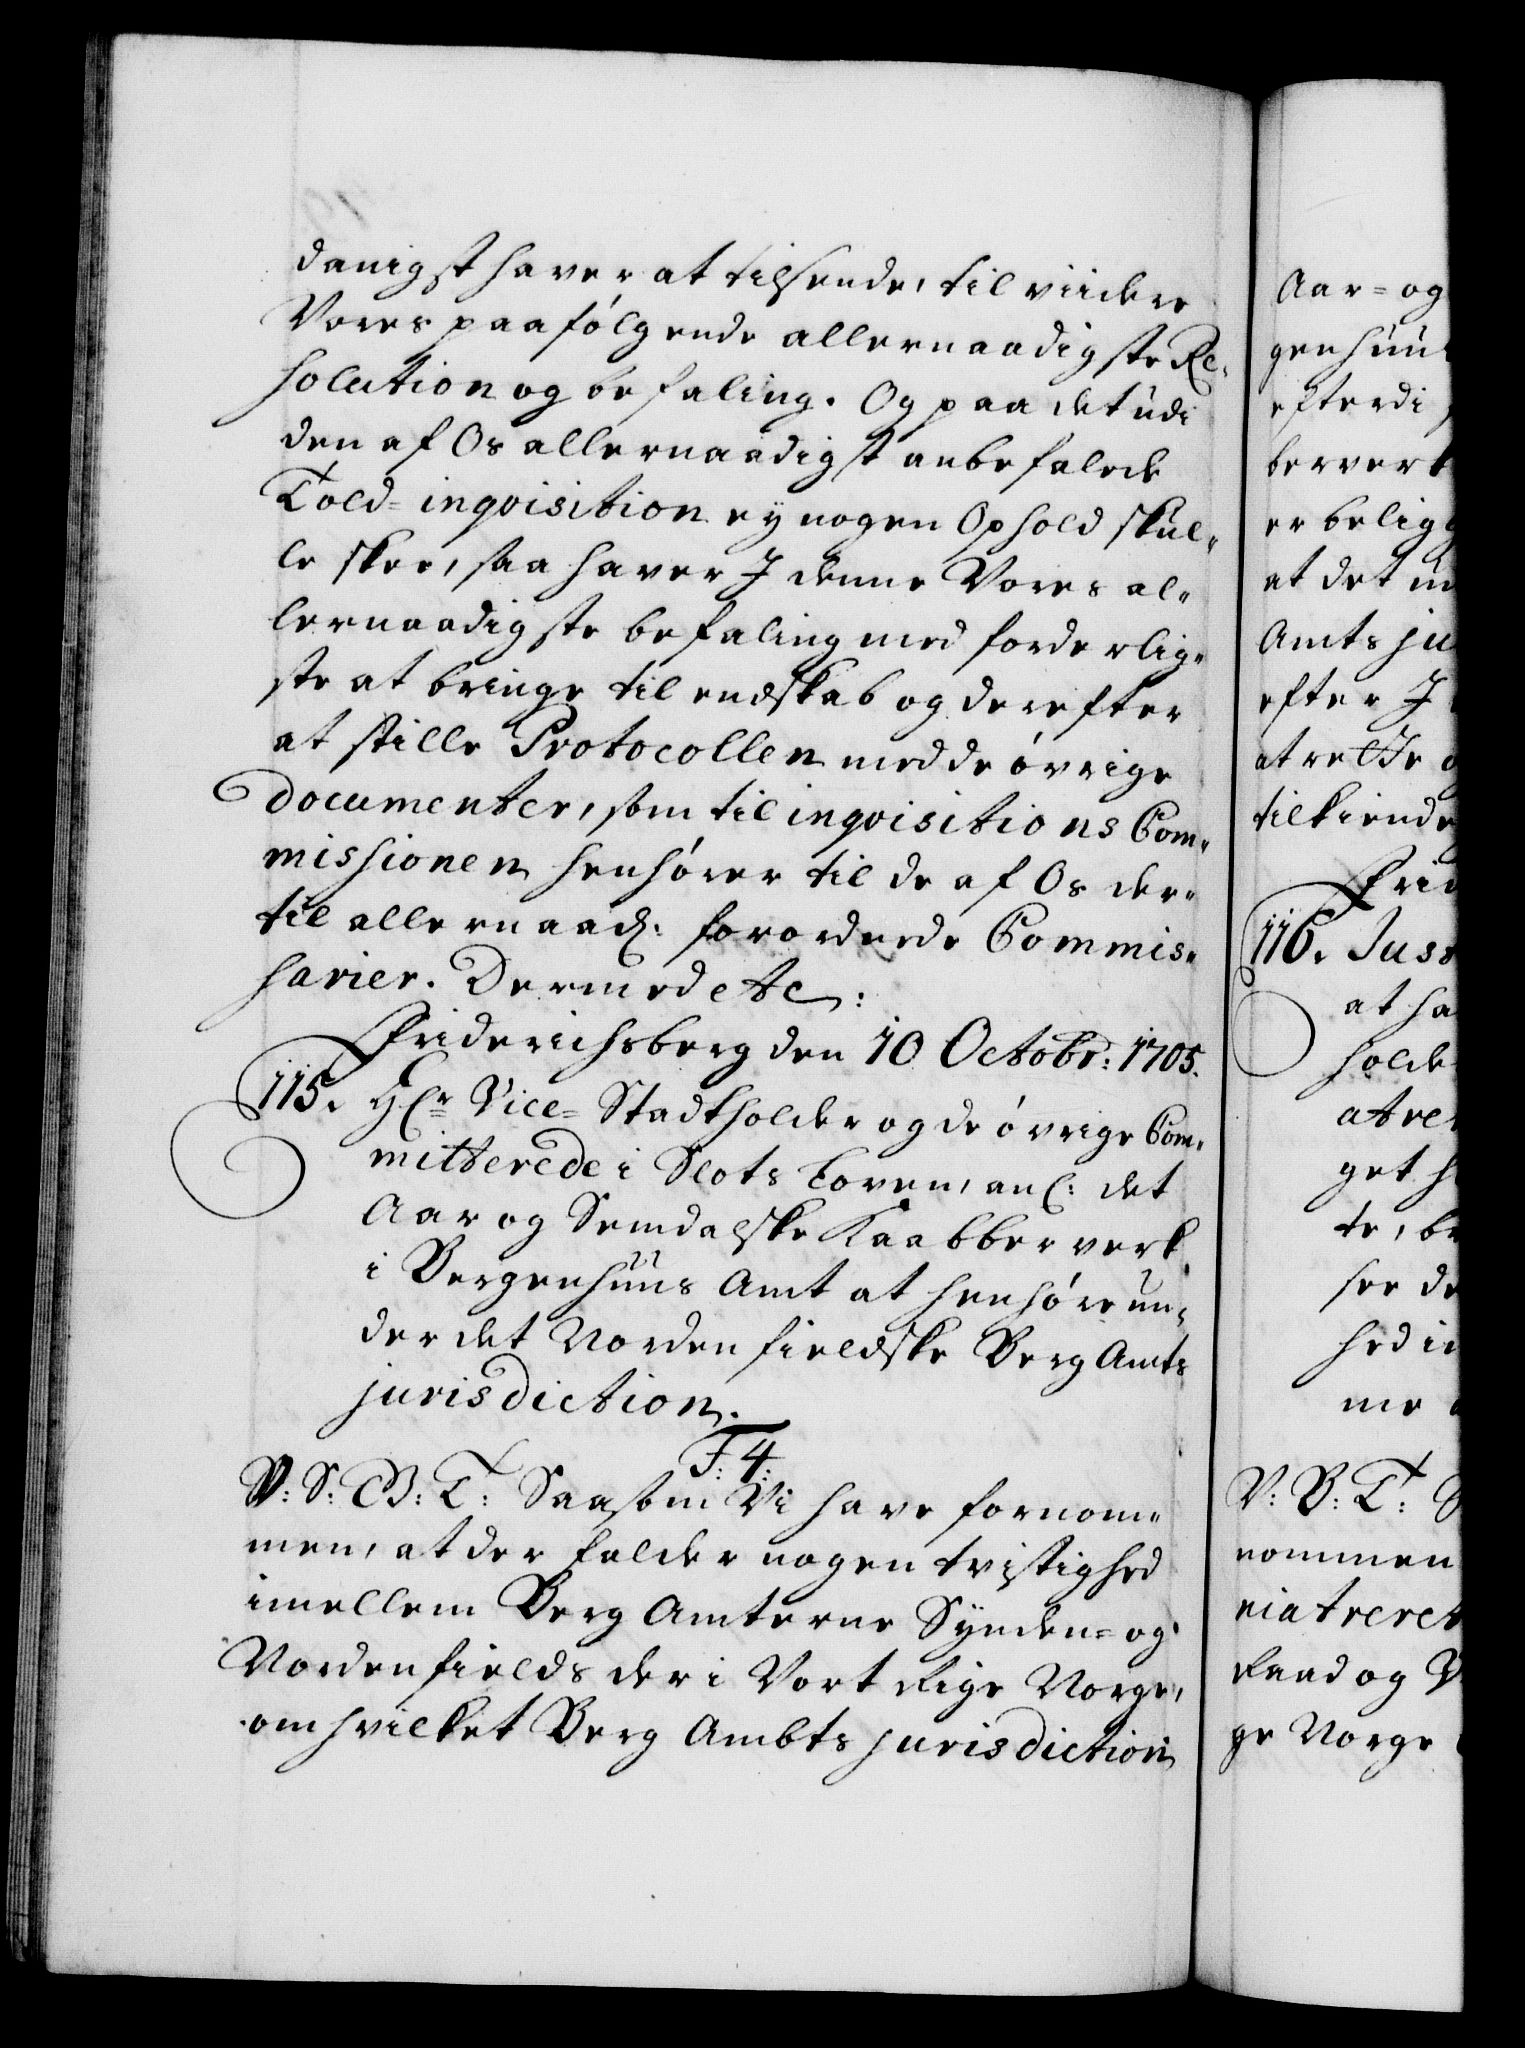 danigst haver at tilsende, til viidere
Vores paafólgende allernaadigste Re-
solution og befaling. Og paa det udi
den af Os allernaadigst anbefalede
Told-inqvisition ey nogen Ophold skul-
le skee, saa haver I denne Vores al-
lernaadigste befaling med forderlig-
ste at bringe til endskab og derefter
at stille Protocollen med de óvrige
Documenter, som til inqvisitions Com-
missionen henhórer til de af Os der-
til allernaad: forordnede Commis-
sarier. Dermed etc:
Friderichsberg den 10 Octobr: 1705.
115. Hr Vice-Stadtholder og de óvrige Com-
mitterede i Slots Loven, anl: det
Aar og Semdalske Kaabberverk
i Bergenhuus Amt at henhóre un-
der det Nordenfieldske Berg Amts
jurisdiction.
F: 4:
V: S: G: T: Saasom Vi have fornom-
men, at der falder nogen tvistighed
imellem Berg Amterne Synden- og
Nordenfields der i Vort Rige Norge,
om hvilket Berg Ambts jurisdiction
Aar- og
genhuu
efterdi
berverk
er belig
at det un
Amts ju
efter I
at rette
tilkiende
Frid
116. Juss
at ha
holde
at re
get h
te, be
see de
hed i
me
V: B: T: S
nommen
niatreret
Raad og V
ge Norge